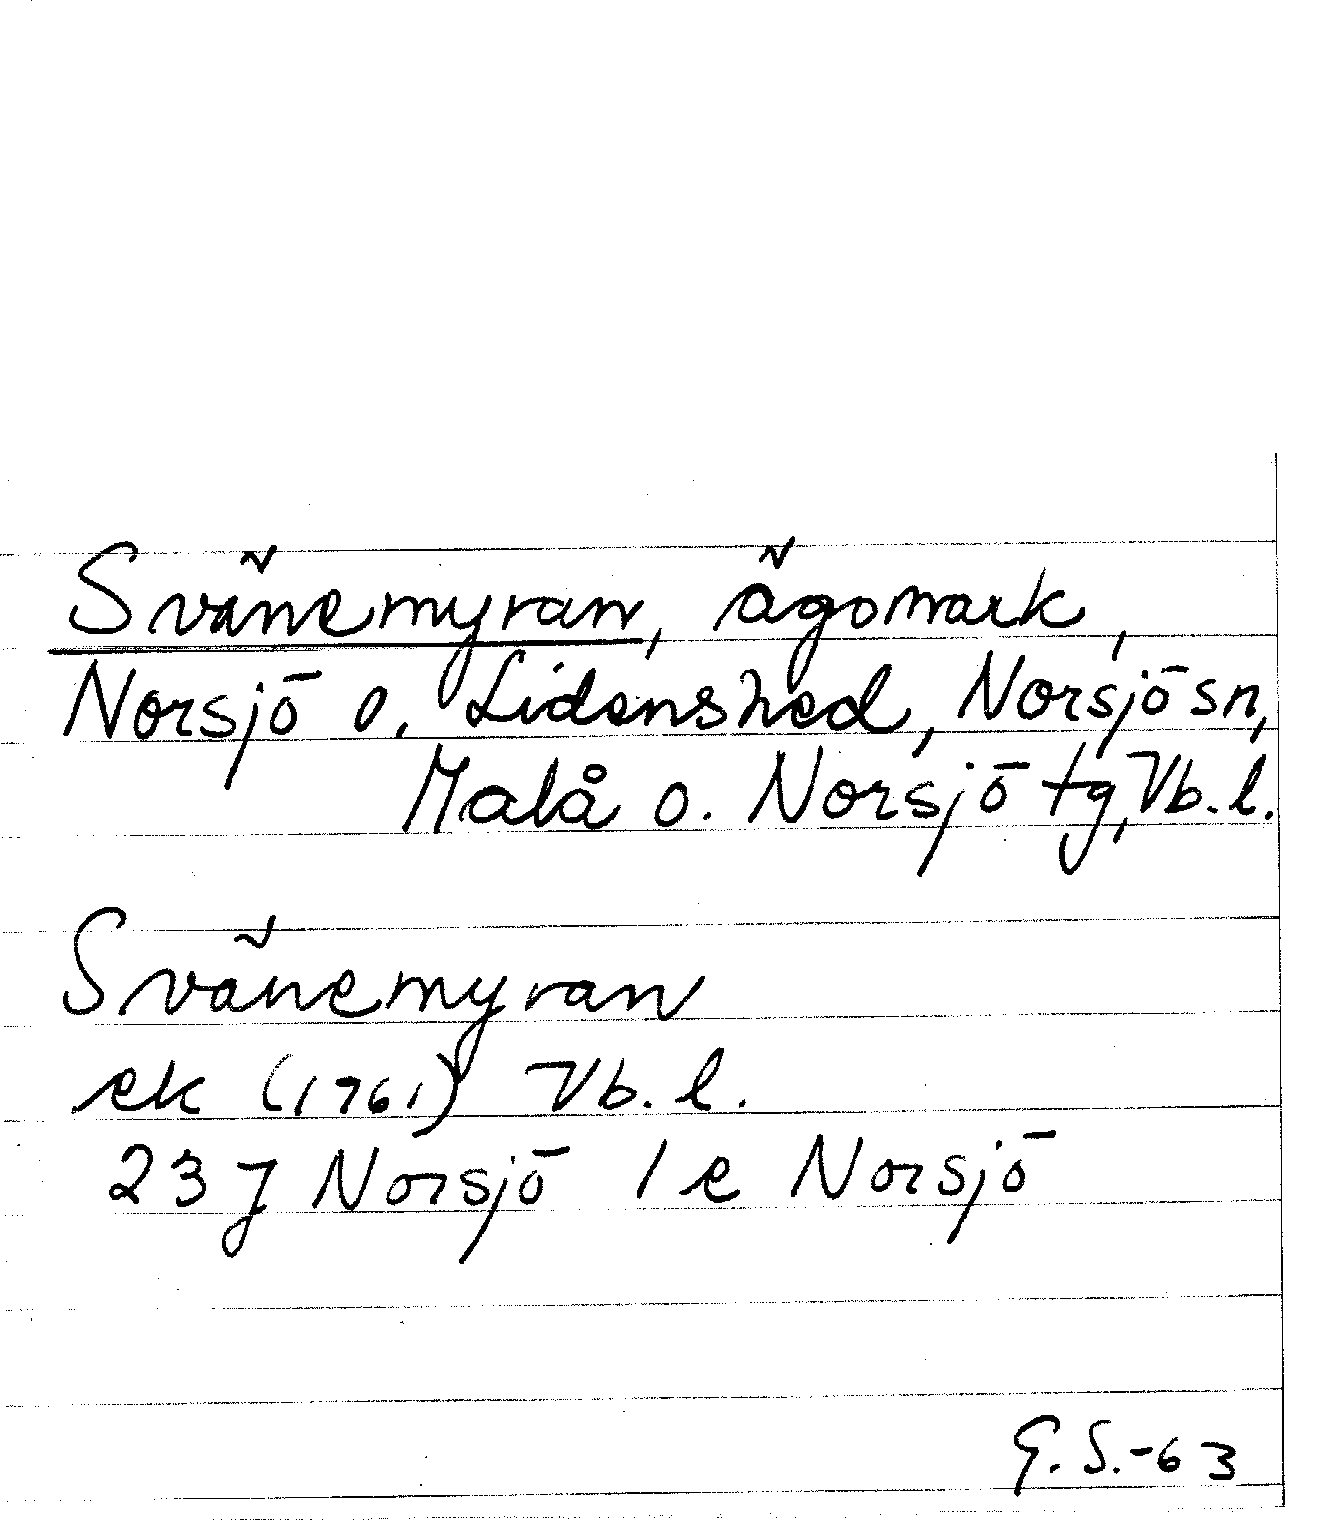 Svänemyran, ägomark,
Norsjö o. Lidenshed, Norsjö sn,
Malå o. Norsjö tg, Vb. l.
Svänemyran
ek (1961) Vb. l.
23 J Norsjö 1 e Norsjö
G. S. -63